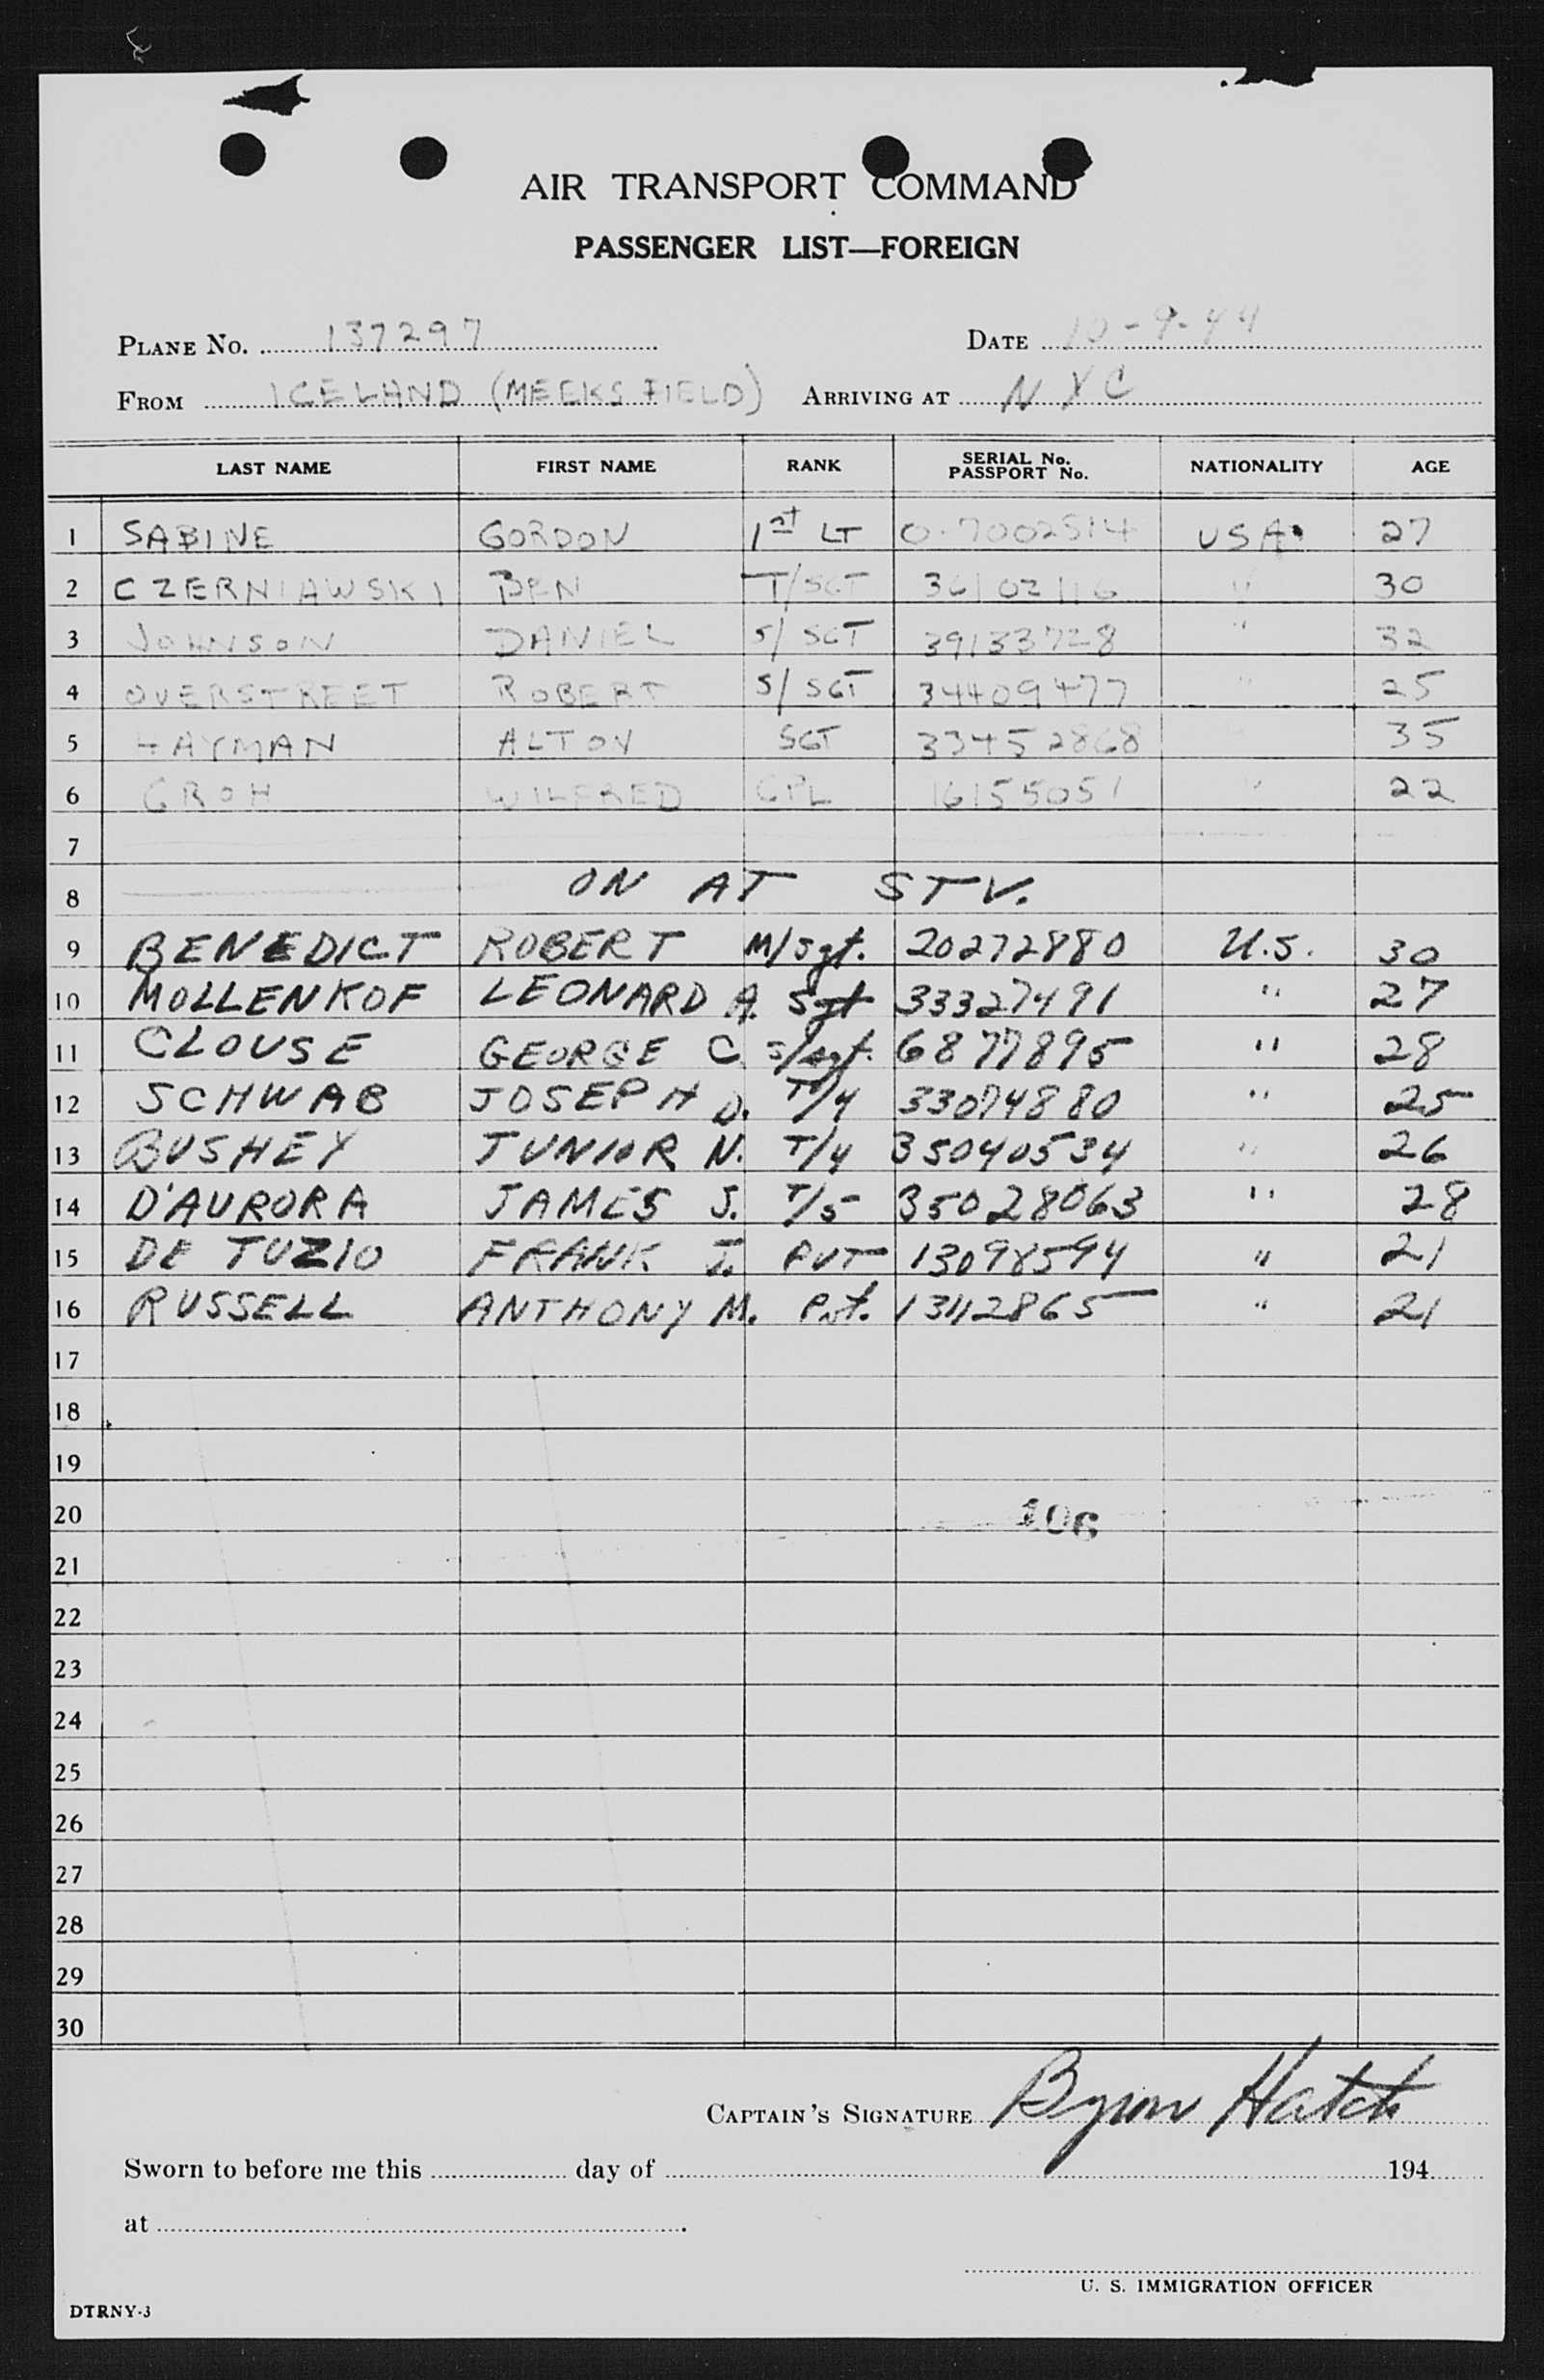 AIR TRANSPORT COMMAND
PASSENGER LIST—FOREIGN
PLANE No. 137297 DATE 10-9-44
FROM ICELAND (MEEKS FIELD) ARRIVING AT NYC
LAST NAME FIRST NAME RANK SERIAL No. PASSPORT No. NATIONALITY AGE
1 SABINE GORDON 1st LT O-7002514 USA 27
2 CZERNIAWSKI BEN T/SGT 36102116 " 30
3 JOHNSON DANIEL S/SGT 39133728 " 32
4 OVERSTREET ROBERT S/SGT 34409477 " 25
5 HAYMAN ALTON SGT 33452868 35
6 GROH WILFRED CPL 16155051 " 22
7
8 ON AT STV.
9 BENEDICT ROBERT M/Sgt. 20272880 U.S. 30
10 MOLLENKOF LEONARD A. Sgt 33327491 " 27
11 CLOUSE GEORGE C. S/Sgt. 6877895 " 28
12 SCHWAB JOSEPH D. T/4 33074880 " 25
13 BUSHEY JUNIOR N. T/4 35040534 " 26
14 D'AURORA JAMES J. T/5 35028063 " 28
15 DE TUZIO FRANK J. PVT 13098594 " 21
16 RUSSELL ANTHONY M. Pvt. 13112865 " 21
17
18
19
20 106
21
22
23
24
25
26
27
28
29
30
CAPTAIN'S SIGNATURE Byron Hatch
Sworn to before me this day of 194
at
U. S. IMMIGRATION OFFICER
DTRNY-3